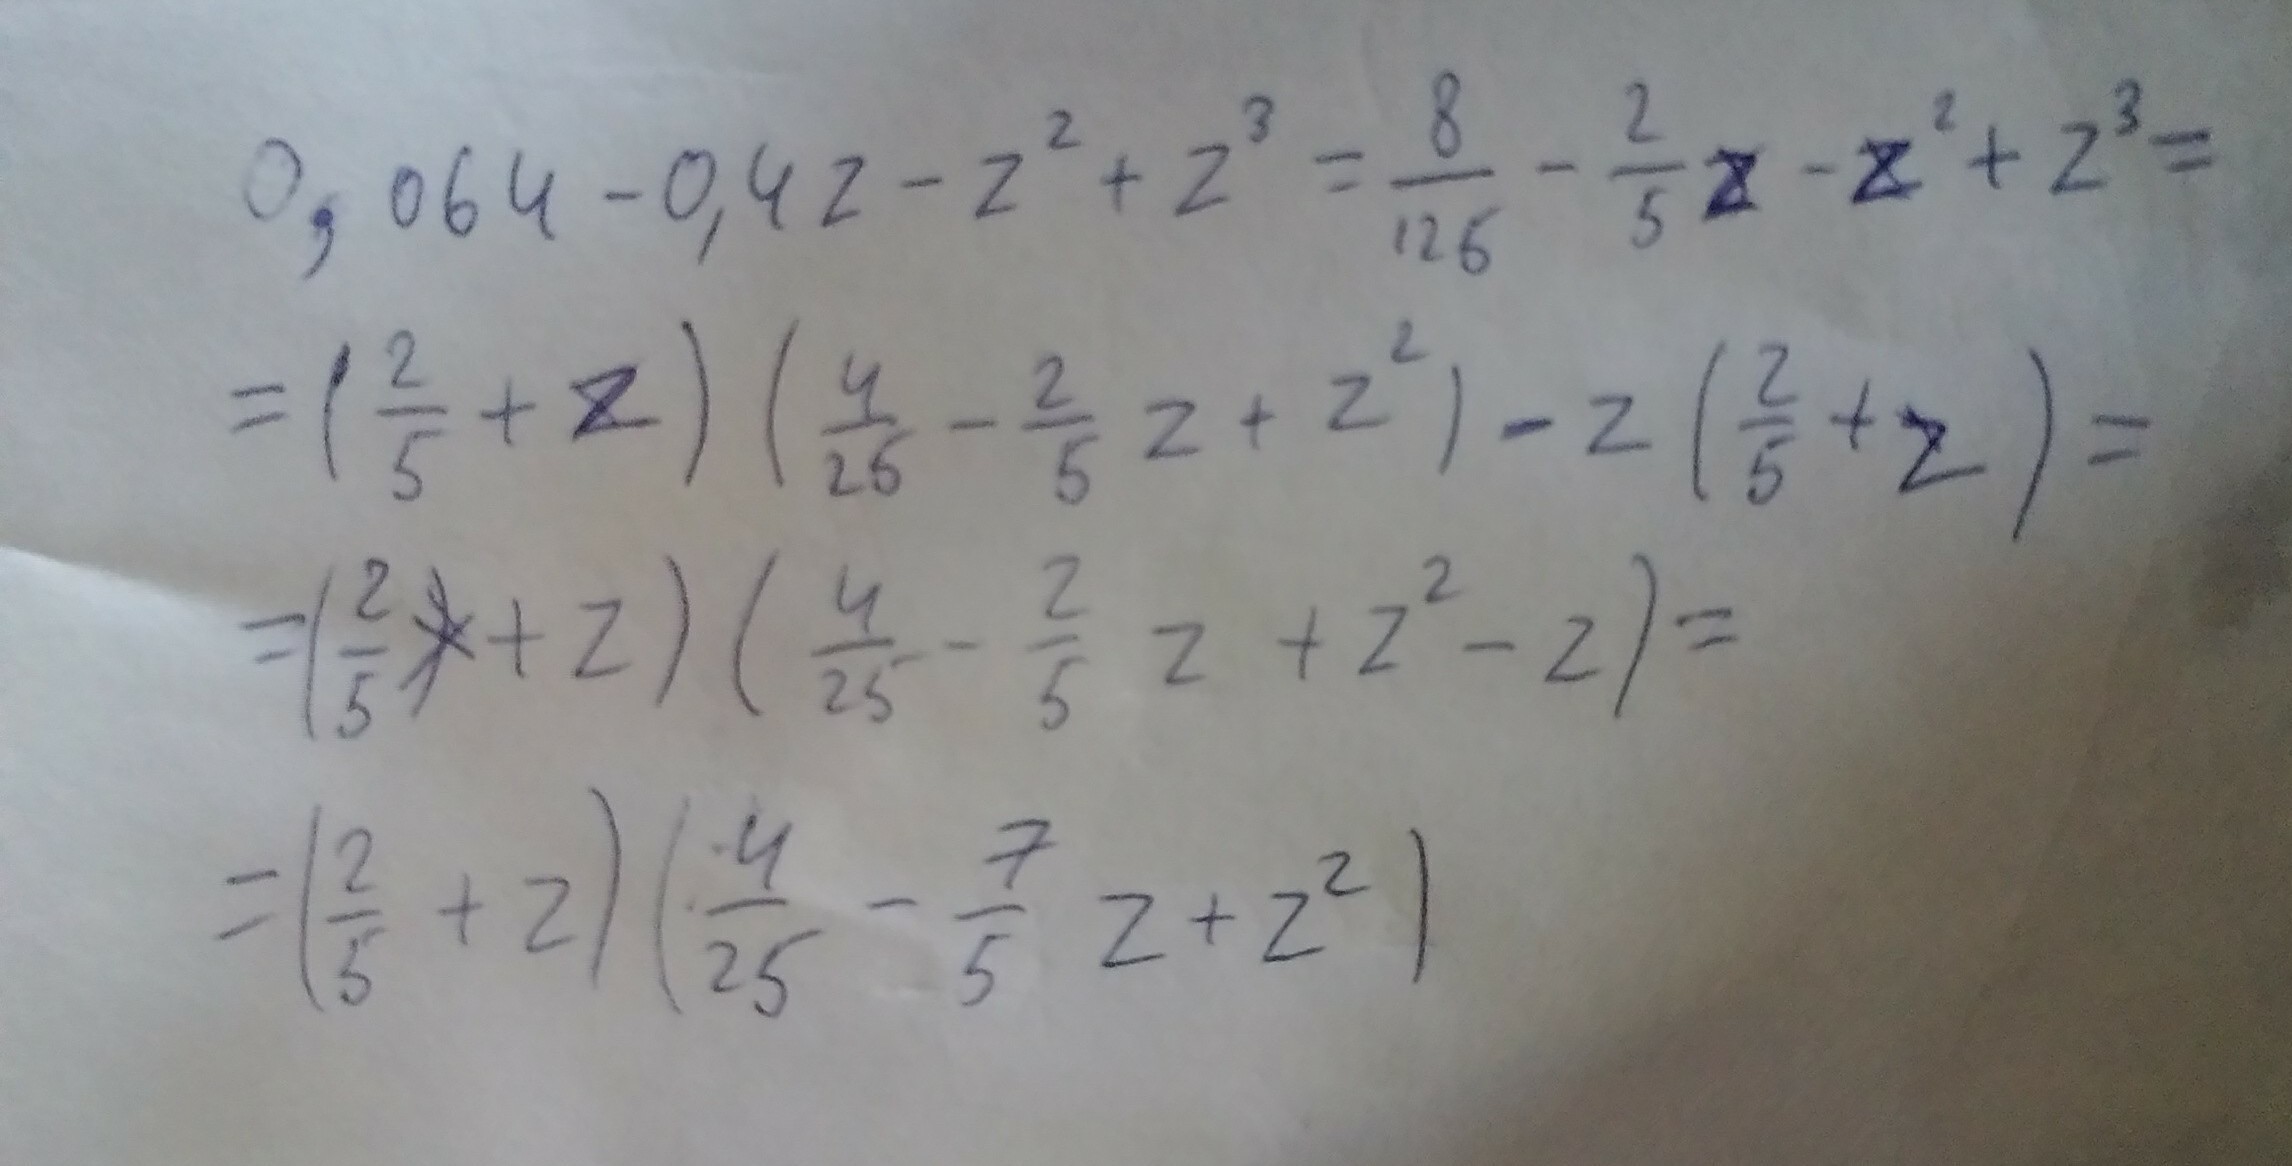 0,064 - 0,4z - z² + z³ = 8/125 - 2/5 z - z² + z³ =
= (2/5 + z) (4/25 - 2/5 z + z²) - z (2/5 + z) =
= (2/5 + z) (4/25 - 2/5 z + z² - z) =
= (2/5 + z) (4/25 - 7/5 z + z²)